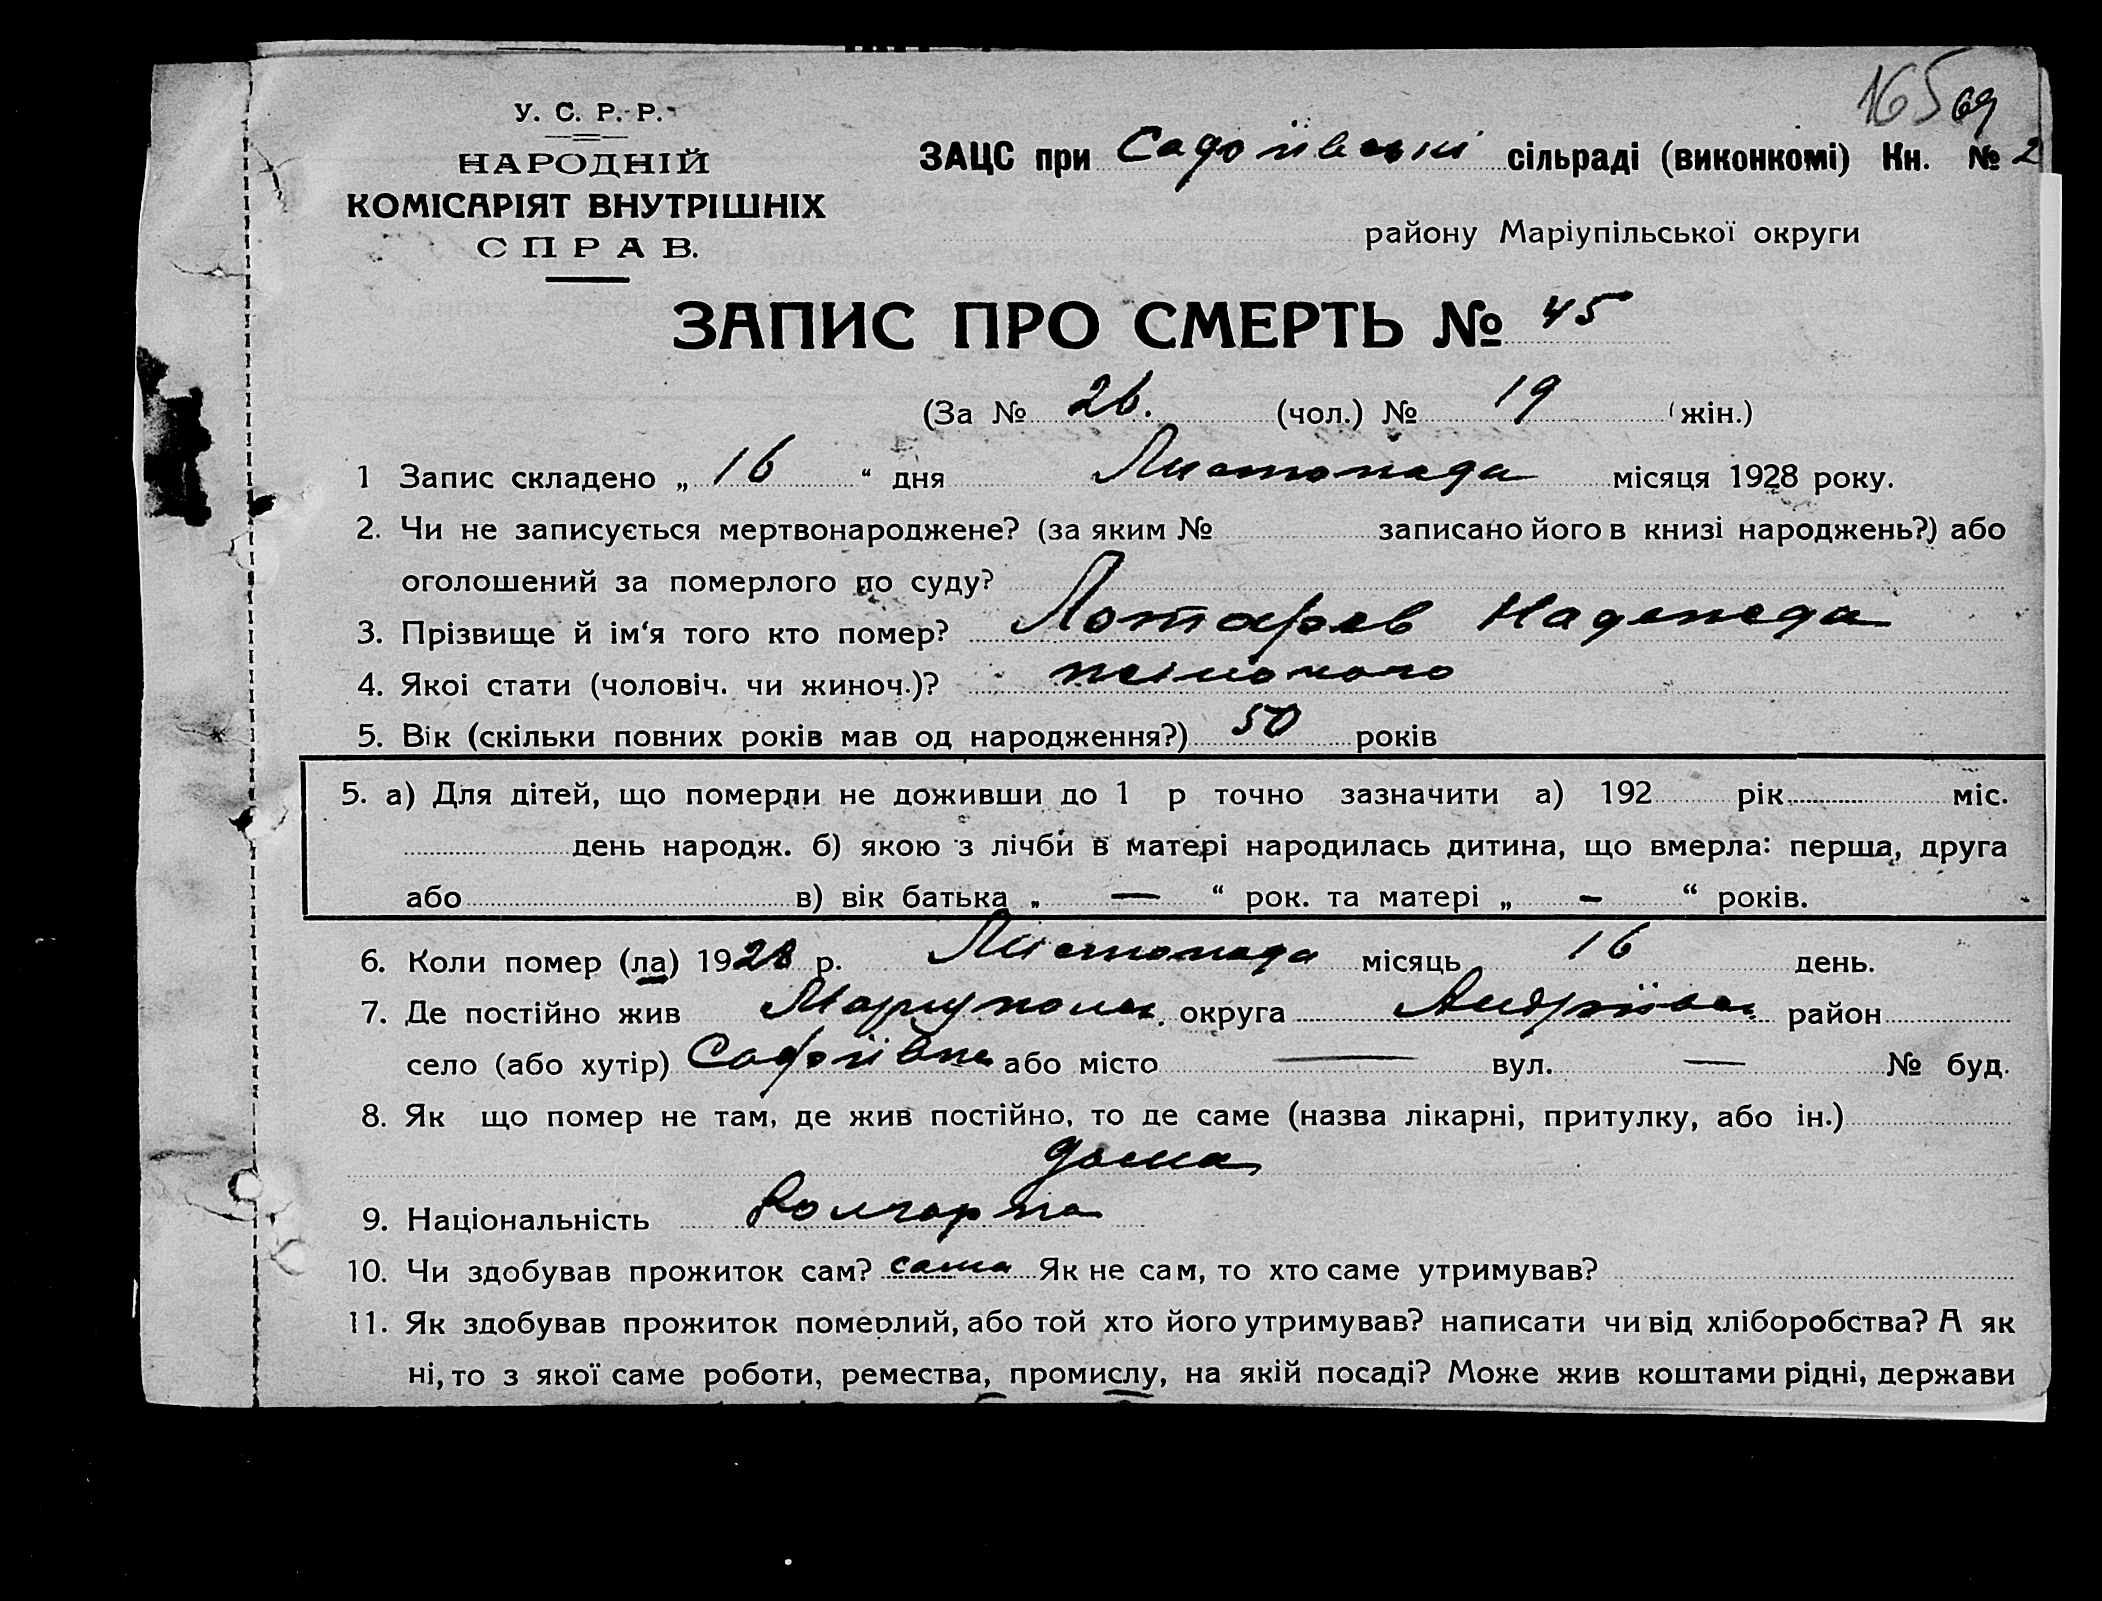 165 69
У. С. Р. Р.
НАРОДНІЙ
КОМІСАРІЯТ ВНУТРІШНІХ
СПРАВ.
ЗАЦС при сільраді (виконкомі) Кн. № 2
району Маріупільської округи
ЗАПИС ПРО СМЕРТЬ № 45
(За № 26. (чол.) № 19 (жін.)
1 Запис складено „ 16 “ дня Листопада місяця 1928 року.
2. Чи не записується мертвонароджене? (за яким № записано його в книзі народжень?) або
оголошений за померлого по суду?
3. Прізвище й ім‘я того кто помер? Лотарев Надежда
4. Якоі стати (чоловіч. чи жиноч.)? жіночого
5. Вік (скільки повних років мав од народження?) 50 років
5. а) Для дітей, що померли не доживши до 1 р точно зазначити а) 192 рік міс.
день народж. б) якою з лічби в матері народилась дитина, що вмерла: перша, друга
або в) вік батька „ — “ рок. та матері „ - “ років.
6. Коли помер (ла) 1928 р. Листопада місяць 16 день.
7. Де постійно жив Мариуполь. округа район
село (або хутір) або місто — вул. — № буд.
8. Як що помер не там, де жив постійно, то де саме (назва лікарні, притулку, або ін.)
дома
9. Національність Болгарка
10. Чи здобував прожиток сам? сама Як не сам, то хто саме утримував?
11. Як здобував прожиток померлий, або той хто його утримував? написати чи від хліборобства? А як
ні, то з якої саме роботи, ремества, промислу, на якій посаді? Може жив коштами рідні, держави